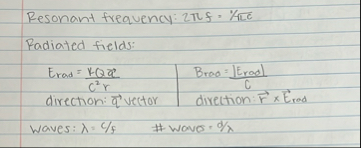 Resonant frequency: 2πf = 1/√LC
Radiated fields:
Erad = kQa / c²r
direction: q vector
Brad = |Erad| / c
direction: r⃗ × E⃗rad
waves: λ = c/f # waves = d/λ